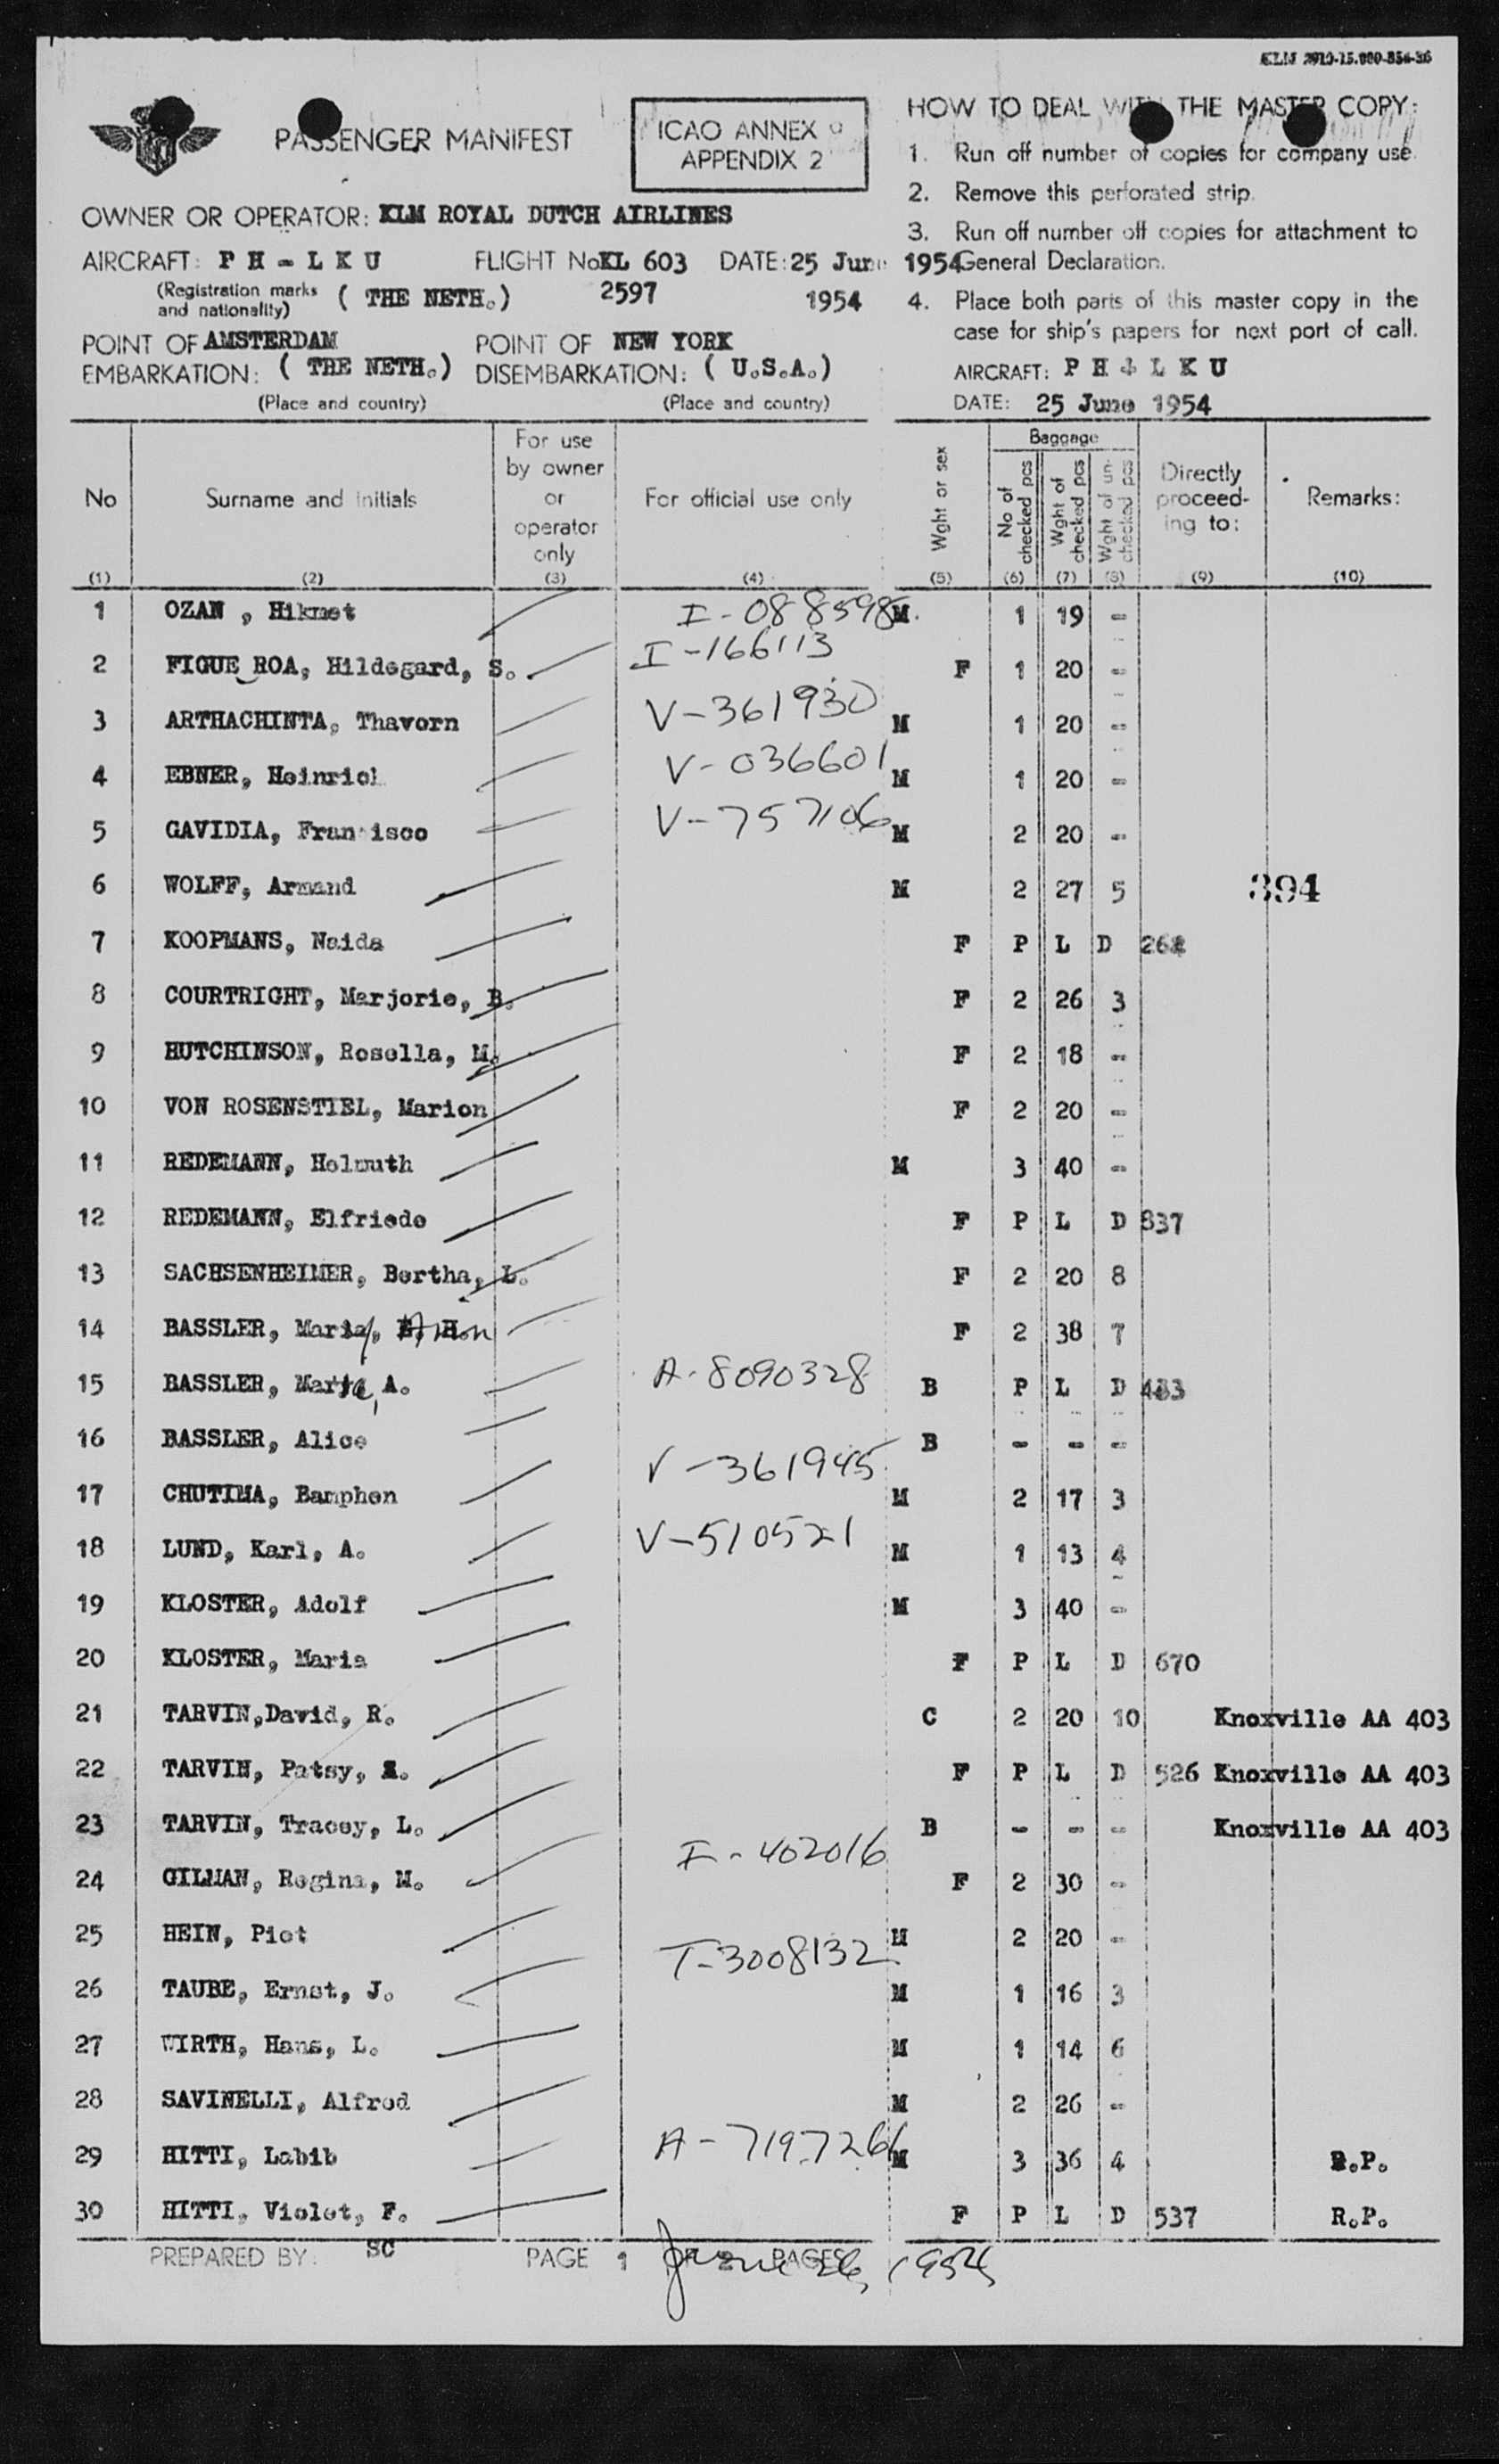 KLM 2910-15.000-854-36
PASSENGER MANIFEST
ICAO ANNEX 9
APPENDIX 2
HOW TO DEAL WITH THE MASTER COPY:
1. Run off number of copies for company use.
2. Remove this perforated strip.
3. Run off number off copies for attachment to
General Declaration.
4. Place both parts of this master copy in the
case for ship's papers for next port of call.
AIRCRAFT: P H - L K U
DATE: 25 June 1954
OWNER OR OPERATOR: KLM ROYAL DUTCH AIRLINES
AIRCRAFT: P H - L K U FLIGHT No KL 603 DATE: 25 June 1954
(Registration marks and nationality) ( THE NETH.) 2597 1954
POINT OF EMBARKATION: AMSTERDAM ( THE NETH.) POINT OF DISEMBARKATION: NEW YORK ( U.S.A.)
(Place and country) (Place and country)
No Surname and initials For use by owner or operator only For official use only Wght or sex Baggage No of checked pcs Wght of checked pcs Wght of un-checked pcs Directly proceed-ing to: Remarks:
(1) (2) (3) (4) (5) (6) (7) (8) (9) (10)
1 OZAN , Hikmet I-088598 M 1 19 -
2 FIGUE ROA, Hildegard, S. I-166113 F 1 20 -
3 ARTHACHINTA, Thavorn V-361930 M 1 20 -
4 EBNER, Heinrich V-036601 M 1 20 -
5 GAVIDIA, Francisco V-757106 M 2 20 -
6 WOLFF, Armand M 2 27 5 394
7 KOOPMANS, Neida F P L D
8 COURTRIGHT, Marjorie, B. F 2 26 3
9 HUTCHINSON, Rosella, M. F 2 18 -
10 VON ROSENSTIEL, Marion F 2 20 -
11 REDEMANN, Helmuth M 3 40 -
12 REDEMANN, Elfriede F P L D 837
13 SACHSENHEIMER, Bertha, L. F 2 20 8
14 BASSLER, Maria, H. F 2 38 7
15 BASSLER, A. A-8090328 B P L D 483
16 BASSLER, Alice B - - -
17 CHUTIMA, Bamphen V-361945 M 2 17 3
18 LUND, Karl, A. V-510521 M 1 13 4
19 KLOSTER, Adolf M 3 40 -
20 KLOSTER, Maria F P L D 670
21 TARVIN,David, R. C 2 20 10 Knoxville AA 403
22 TARVIN, Patsy, F P L D 526 Knoxville AA 403
23 TARVIN, Tracey, L. B - - - Knoxville AA 403
24 GILMAN, Regina, M. I-402016 F 2 30 -
25 HEIN, Piet M 2 20 -
26 TAUBE, Ernst, J. T-3008132 M 1 16 3
27 WIRTH, Hans, L. M 1 14 6
28 SAVINELLI, Alfred M 2 26 -
29 HITTI, Labib A-7197266 M 3 36 4 R.P.
30 HITTI, Violet, F. F P L D 537 R.P.
PREPARED BY: SC PAGE 1 OF 2 PAGES
June 26, 1954